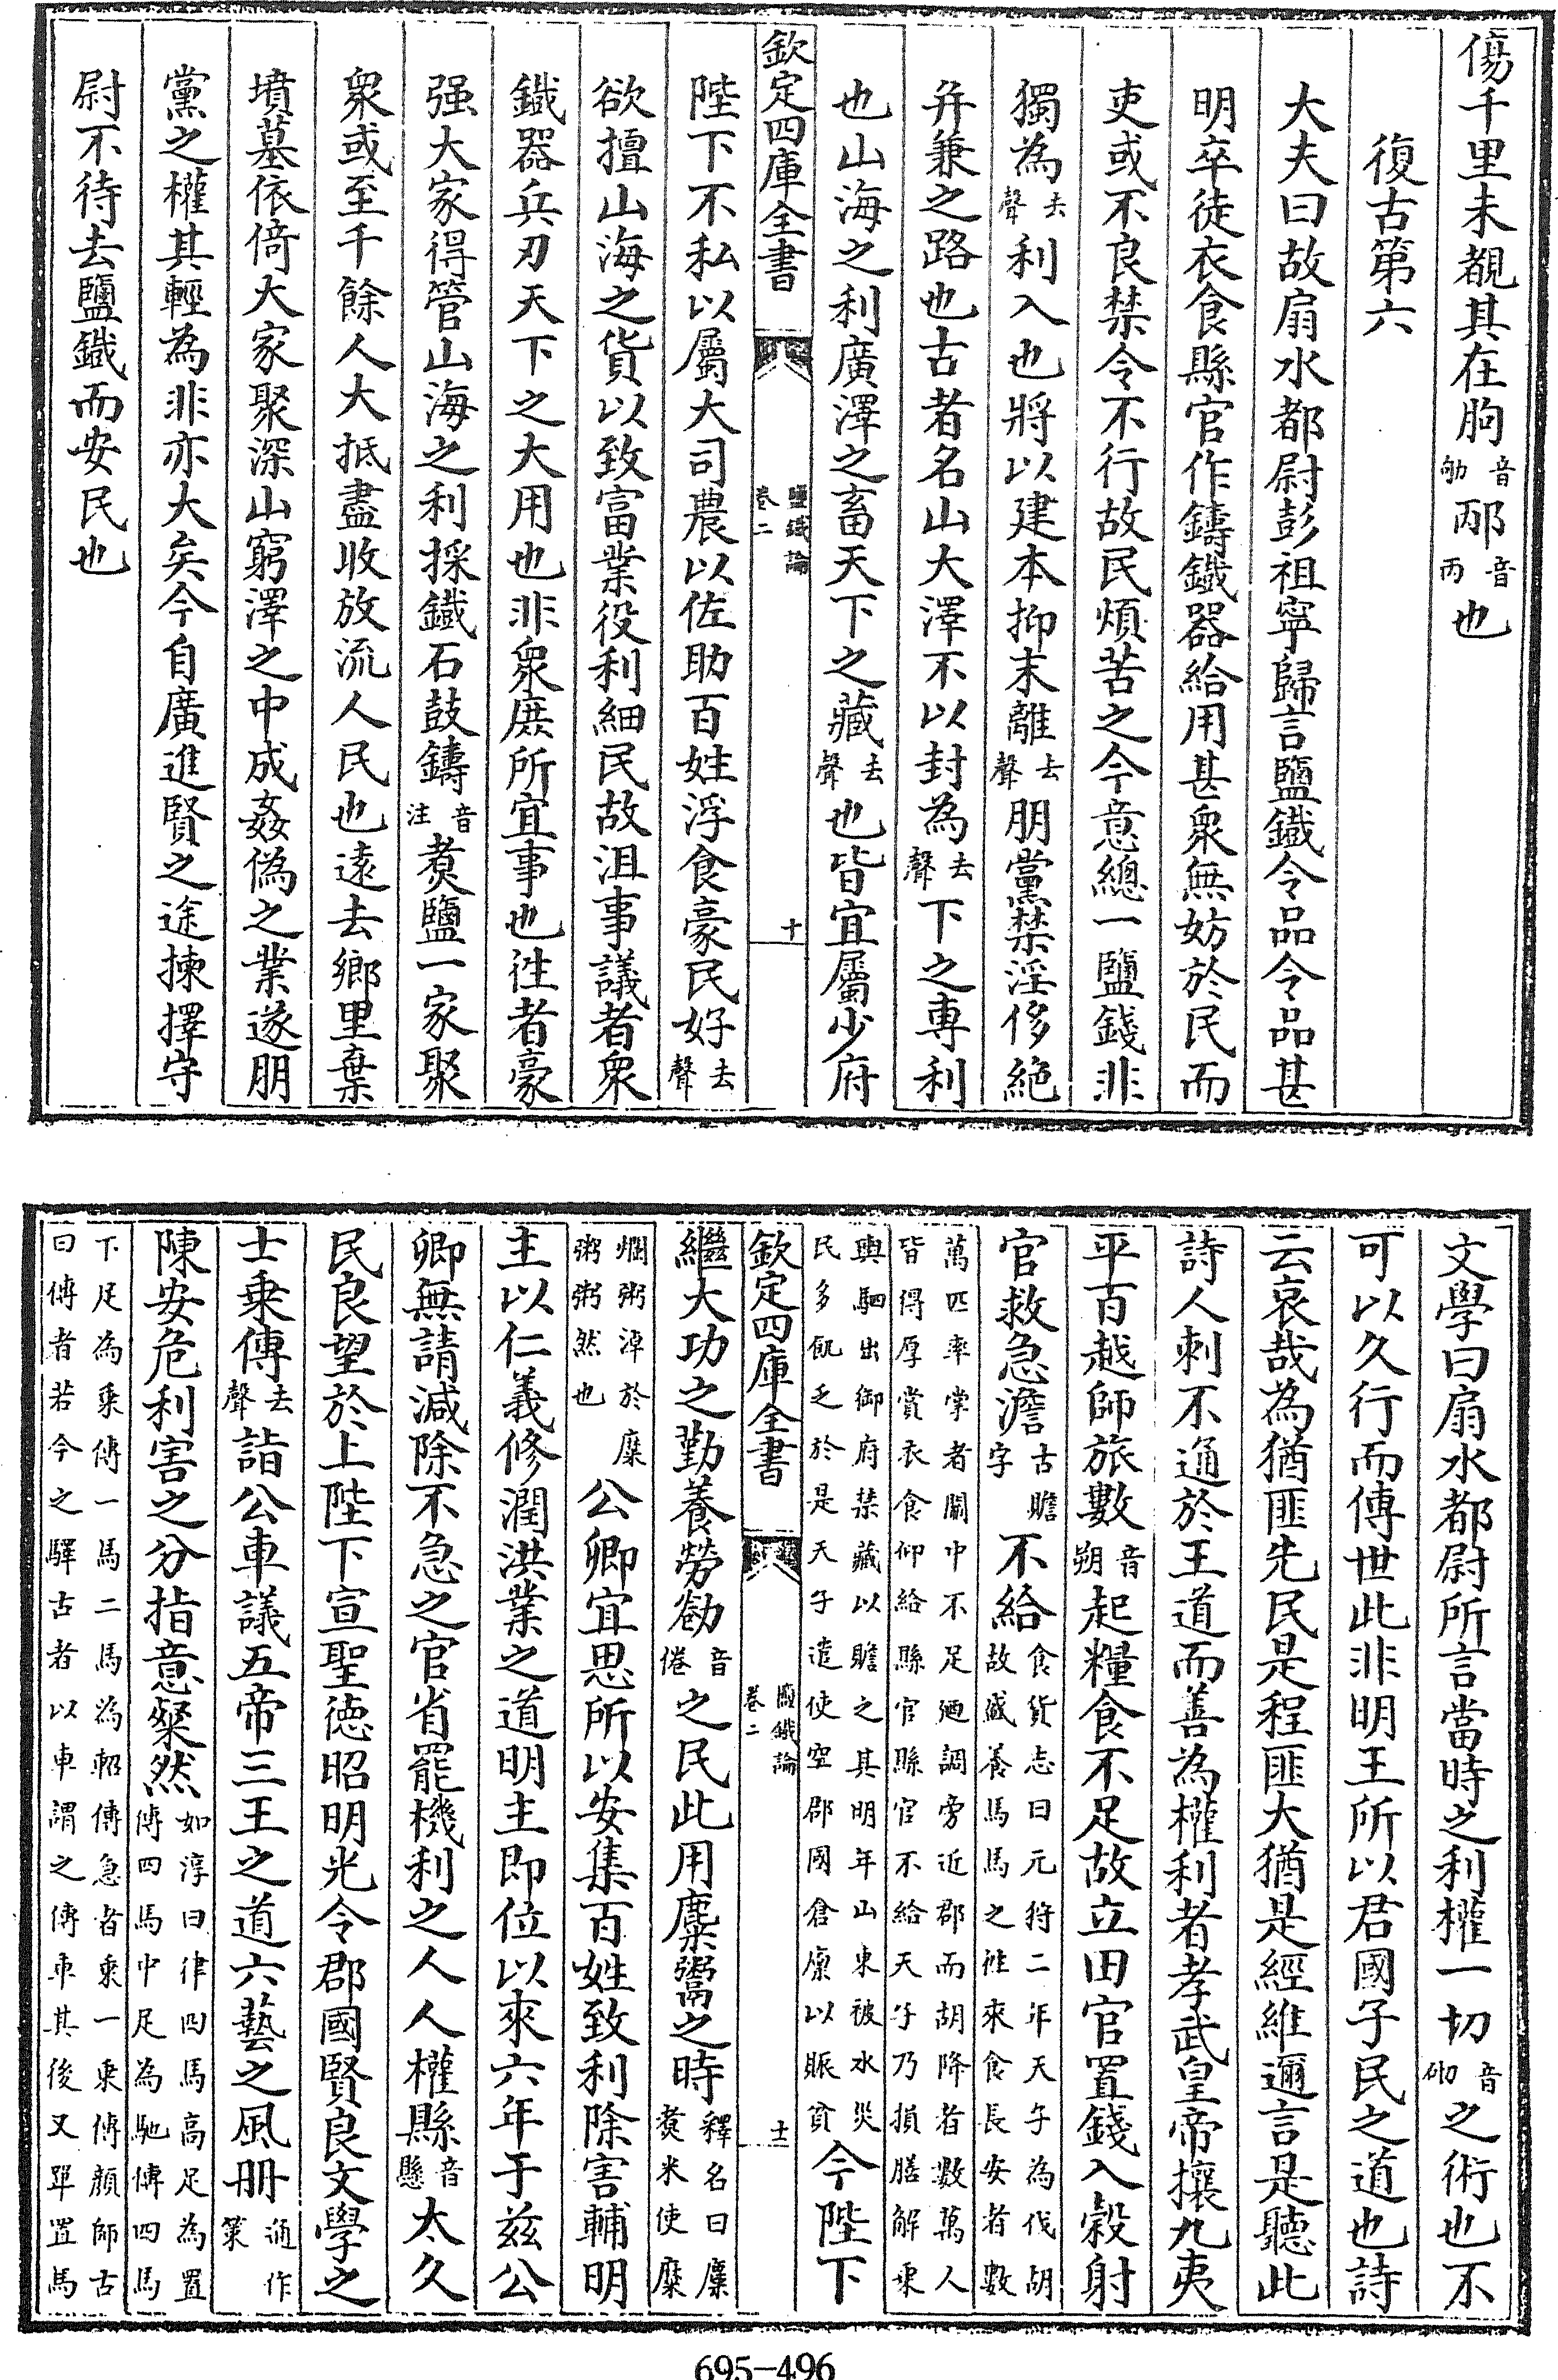 傷千里未覩其在朐音劬邴音丙也
復古第六
大夫曰故扇水都尉彭祖寧歸言鹽鐵令品令品甚
明卒徒衣食縣官作鑄鐵器給用甚衆無妨於民而
吏或不良禁令不行故民煩苦之令意總一鹽錢非
獨為去聲利入也將以建本抑末離去聲朋黨禁淫侈絶
并兼之路也古者名山大澤不以封為去聲下之專利
也山海之利廣澤之畜天下之藏去聲也皆宜屬少府
欽定四庫全書
鹽鐵論
卷二
十
陛下不私以屬大司農以佐助百姓浮食豪民好去聲
欲擅山海之貨以致富業役利細民故沮事議者衆
鐵器兵刃天下之大用也非衆庶所宜事也徃者豪
强大家得管山海之利採鐵石鼓鑄音注煑鹽一家聚
衆或至千餘人大抵盡收放流人民也逺去鄉里棄
墳墓依倚大家聚深山窮澤之中成姦偽之業遂朋
黨之權其輕為非亦大矣今自廣進賢之途揀擇守
尉不待去鹽鐵而安民也
文學曰扇水都尉所言當時之利權一切音砌之術也不
可以久行而傳世此非明王所以君國子民之道也詩
云哀哉為猶匪先民是程匪大猶是經維邇言是聽此
詩人刺不通於王道而善為權利者孝武皇帝攘九夷
平百越師旅數音朔起糧食不足故立田官置錢入榖射
官救急澹古贍字不給食貨志曰元狩二年天子為伐胡故盛養馬馬之徃來食長安者數
萬匹率掌者闗中不足廼調旁近郡而胡降者數萬人皆得厚賞衣食仰給縣官縣官不給天子乃損膳解乘
輿駟出御府禁藏以贍之其明年山東被水災民多飢乏於是天子遣使空郡國倉廩以賑貧今陛下
欽定四庫全書
鹽鐵論
卷二
十一
繼大功之勤養勞勌音倦之民此用麋鬻之時釋名曰糜煑米使糜
爛粥淖於糜粥粥然也公卿宜思所以安集百姓致利除害輔明
主以仁義修潤洪業之道明主即位以來六年于兹公
卿無請減除不急之官省罷機利之人人權縣音懸太久
民良望於上陛下宣聖徳昭明光令郡國賢良文學之
士乗傳去聲詣公車議五帝三王之道六藝之風冊通作策
陳安危利害之分指意粲然如淳曰律四馬高足為置傳四馬中足為馳傳四馬
下足為乗傳一馬二馬為軺傳急者乗一乗傳顔師古曰傳者若今之驛古者以車謂之傳車其後又單置馬
695-496